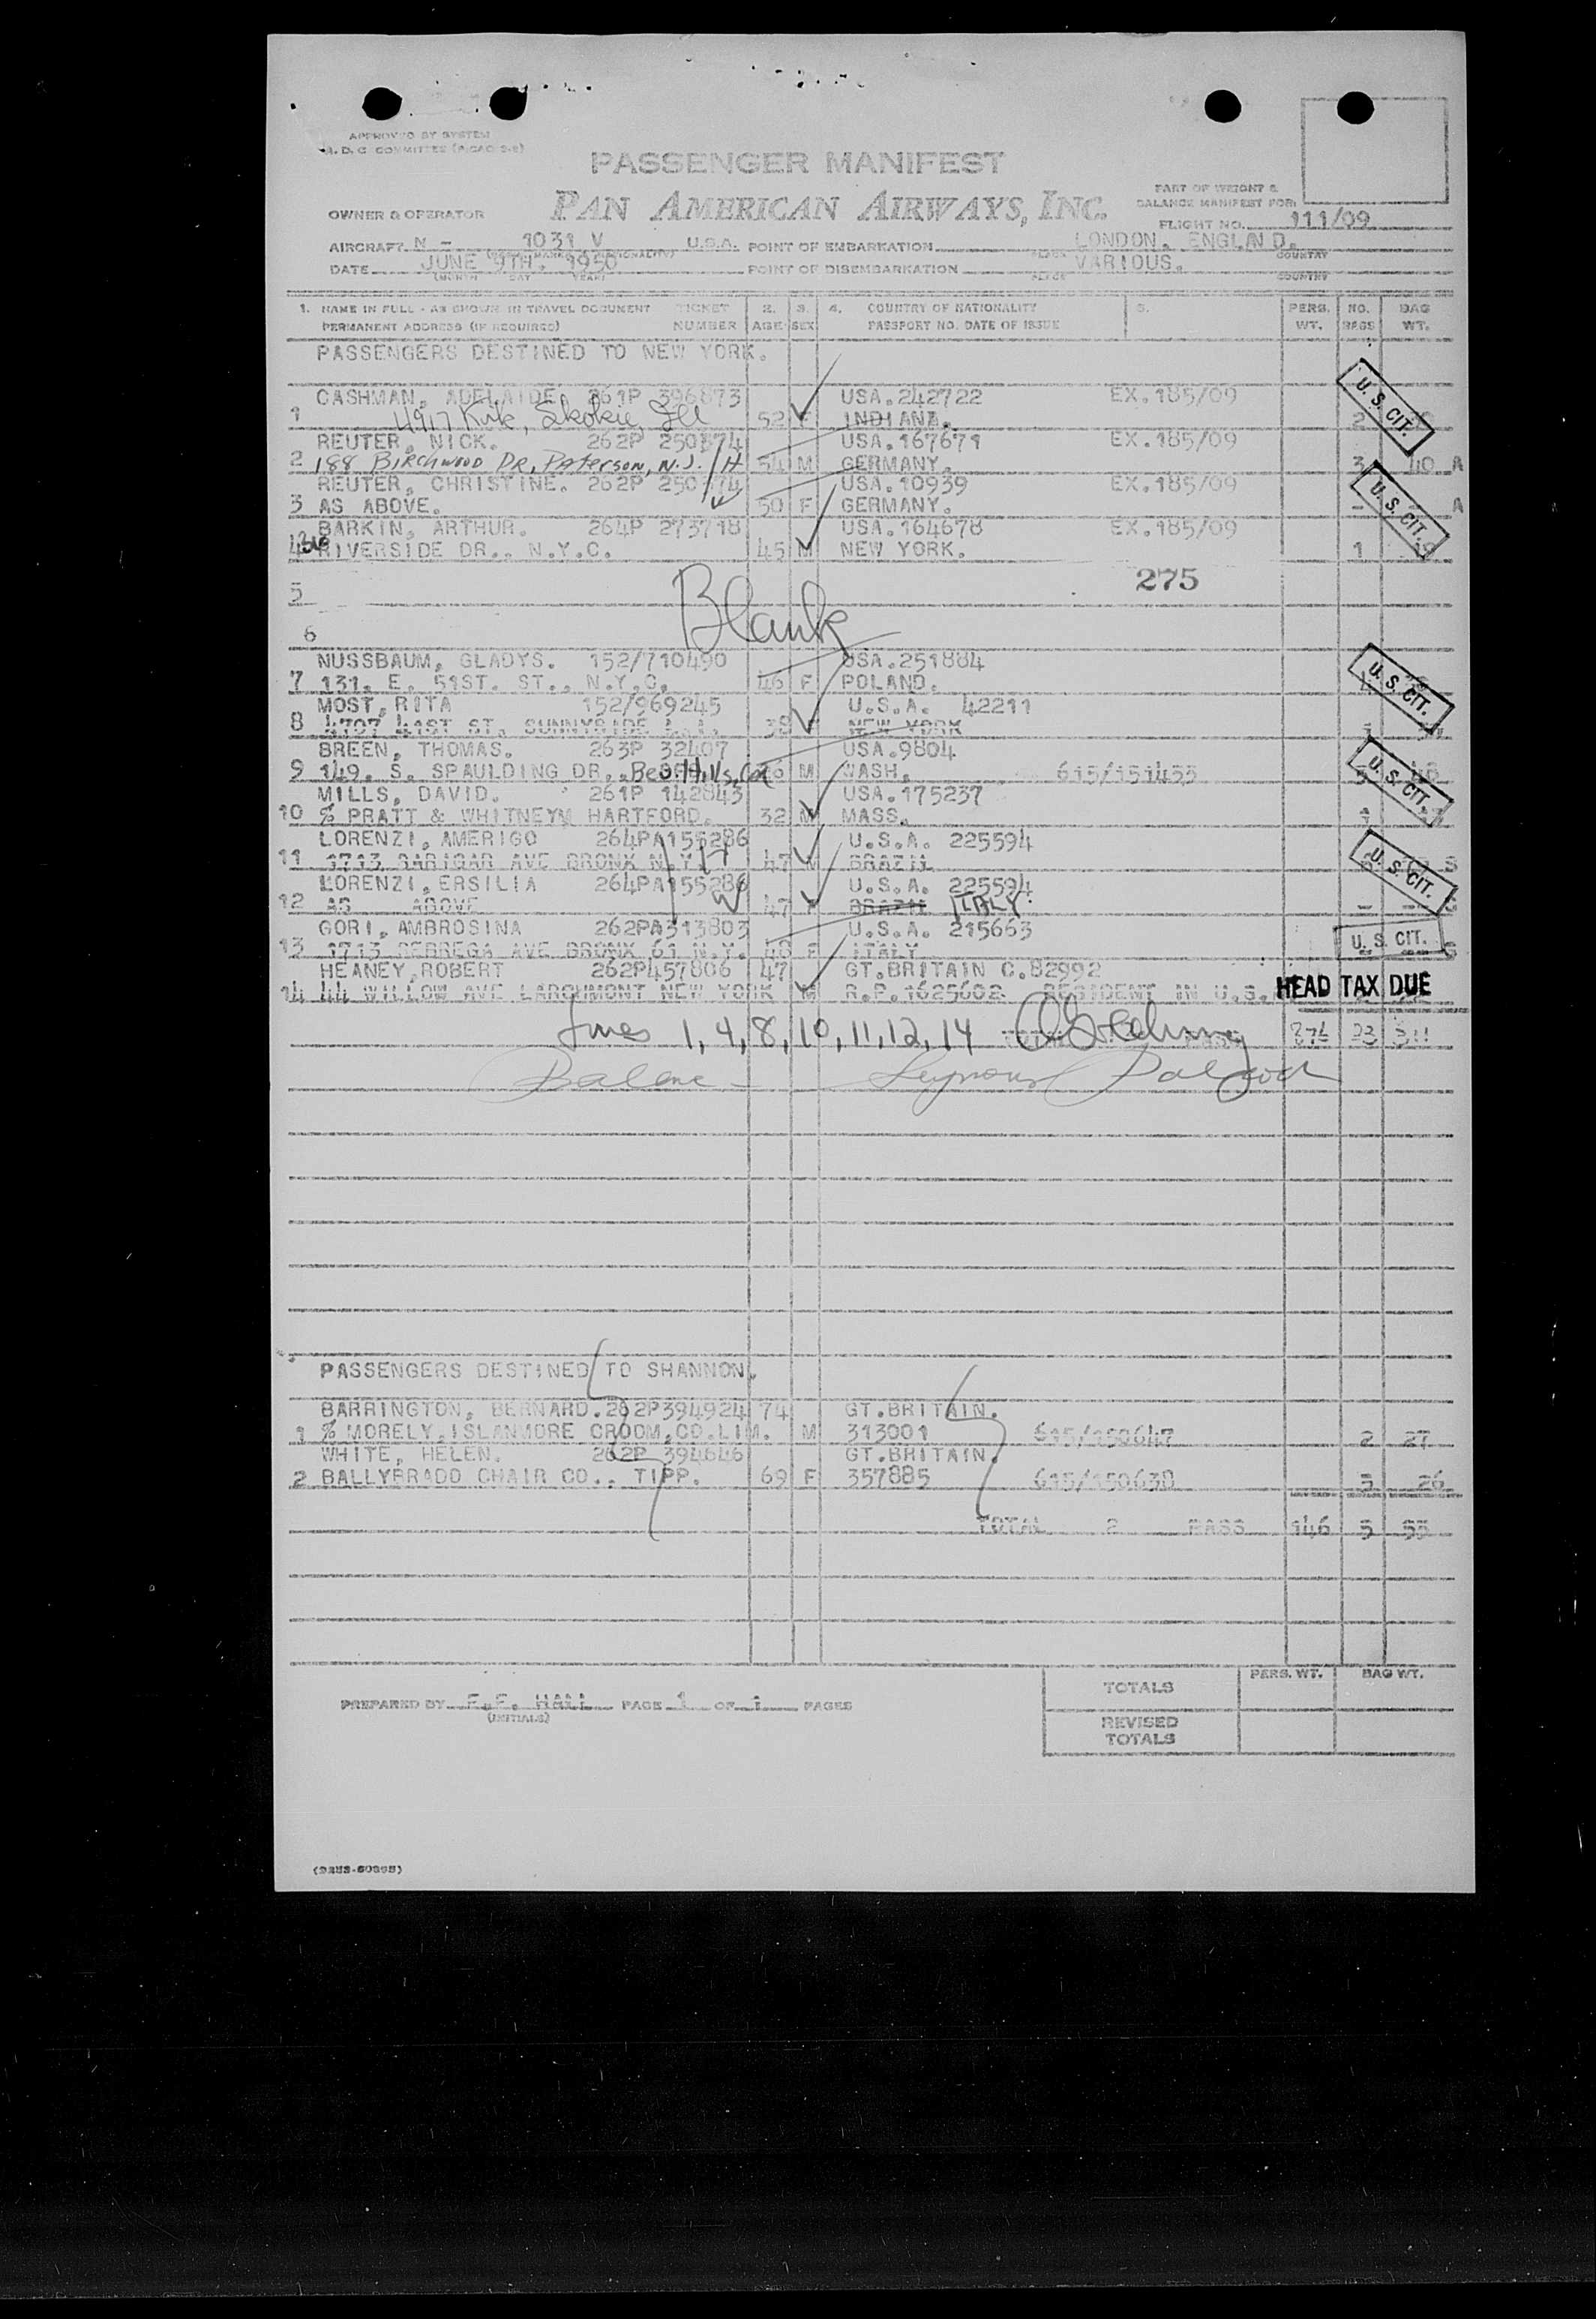 APPROVED BY SYSTEM
PASSENGER MANIFEST
PAN AMERICAN AIRWAYS, INC.
PART OF WEIGHT &
BALANCE MANIFEST FOR:
OWNER & OPERATOR
FLIGHT NO. 111/09
AIRCRAFT N - 1031 V U.S.A. POINT OF EMBARKATION LONDON, ENGLAND.
DATE JUNE 9TH. 1950 POINT OF DISEMBARKATION VARIOUS.
1. NAME IN FULL - AS SHOWN IN TRAVEL DOCUMENT TICKET 2. 3. 4. COUNTRY OF NATIONALITY 5. PERS. NO. BAG
PERMANENT ADDRESS (IF REQUIRED) NUMBER AGE SEX PASSPORT NO. DATE OF ISSUE WT. BAGS WT.
PASSENGERS DESTINED TO NEW YORK.
CASHMAN, ADELAIDE. 261P 396873 USA.242722 EX.185/09
1 4917 Kirk, Skokie, Ill 52 F INDIANA. 2 U.S. CIT.
REUTER, NICK. 262P 250374 USA.167671 EX.185/09
2 188 BIRCHWOOD DR, PATERSON, N.J. /H 54 M GERMANY. 3 40 A
REUTER, CHRISTINE. 262P 250374 USA.10939 EX.185/09
3 AS ABOVE. W 50 F GERMANY. - A U.S. CIT.
BARKIN, ARTHUR. 264P 273718 USA.164678 EX.185/09
4 RIVERSIDE DR., N.Y.C. 45 M NEW YORK. 1
5 275
Blank
6
NUSSBAUM, GLADYS. 152/710490 USA.251884
7 131. E. 51ST. ST., N.Y.C. 46 F POLAND. U.S. CIT.
MOST, RITA 152/969245 U.S.A. 42211
8 4707 41ST ST. SUNNYSIDE L.I. 38 NEW YORK
BREEN, THOMAS. 263P 32407 USA.9804
9 149. S. SPAULDING DR., Bev. Hills, Cal M WASH. 615/151433 U.S. CIT.
MILLS, DAVID. 261P 142843 USA.175237
10 % PRATT & WHITNEY HARTFORD. 32 M MASS. 1
LORENZI, AMERIGO 264PA155286 U.S.A. 225594
11 1713 AVE BRONX N.Y. H 47 M BRAZIL U.S. CIT.
LORENZI, ERSILIA 264PA155286 U.S.A. 225594
12 AS ABOVE W 47 F BRAZIL ITALY
GORI, AMBROSINA 262PA313803 U.S.A. 215663
13 1713 AVE BRONX 61 N.Y. 48 F ITALY U.S. CIT.
HEANEY, ROBERT 262P457806 47 GT.BRITAIN C.82992
14 44 WILLOW AVE LARCHMONT NEW YORK M R.P.1625602 RESIDENT IN U.S. HEAD TAX DUE
Lines 1, 4, 8, 10, 11, 12, 14
Balance Seymour
PASSENGERS DESTINED TO SHANNON.
BARRINGTON, BERNARD. 262P394924 74 GT.BRITAIN.
1 % MORELY, ISLANMORE CROOM, CO.LIM. M 313001 615/150647 2 27
WHITE, HELEN. 262P 394646 GT.BRITAIN.
2 BALLYBRADO CHAIR CO., TIPP. 69 F 357885 615/150638 3 26
TOTAL 2 PASS 146 5 53
PERS. WT. BAG WT.
TOTALS
PREPARED BY HALL PAGE 1 OF 1 PAGES
(INITIALS)
REVISED
TOTALS